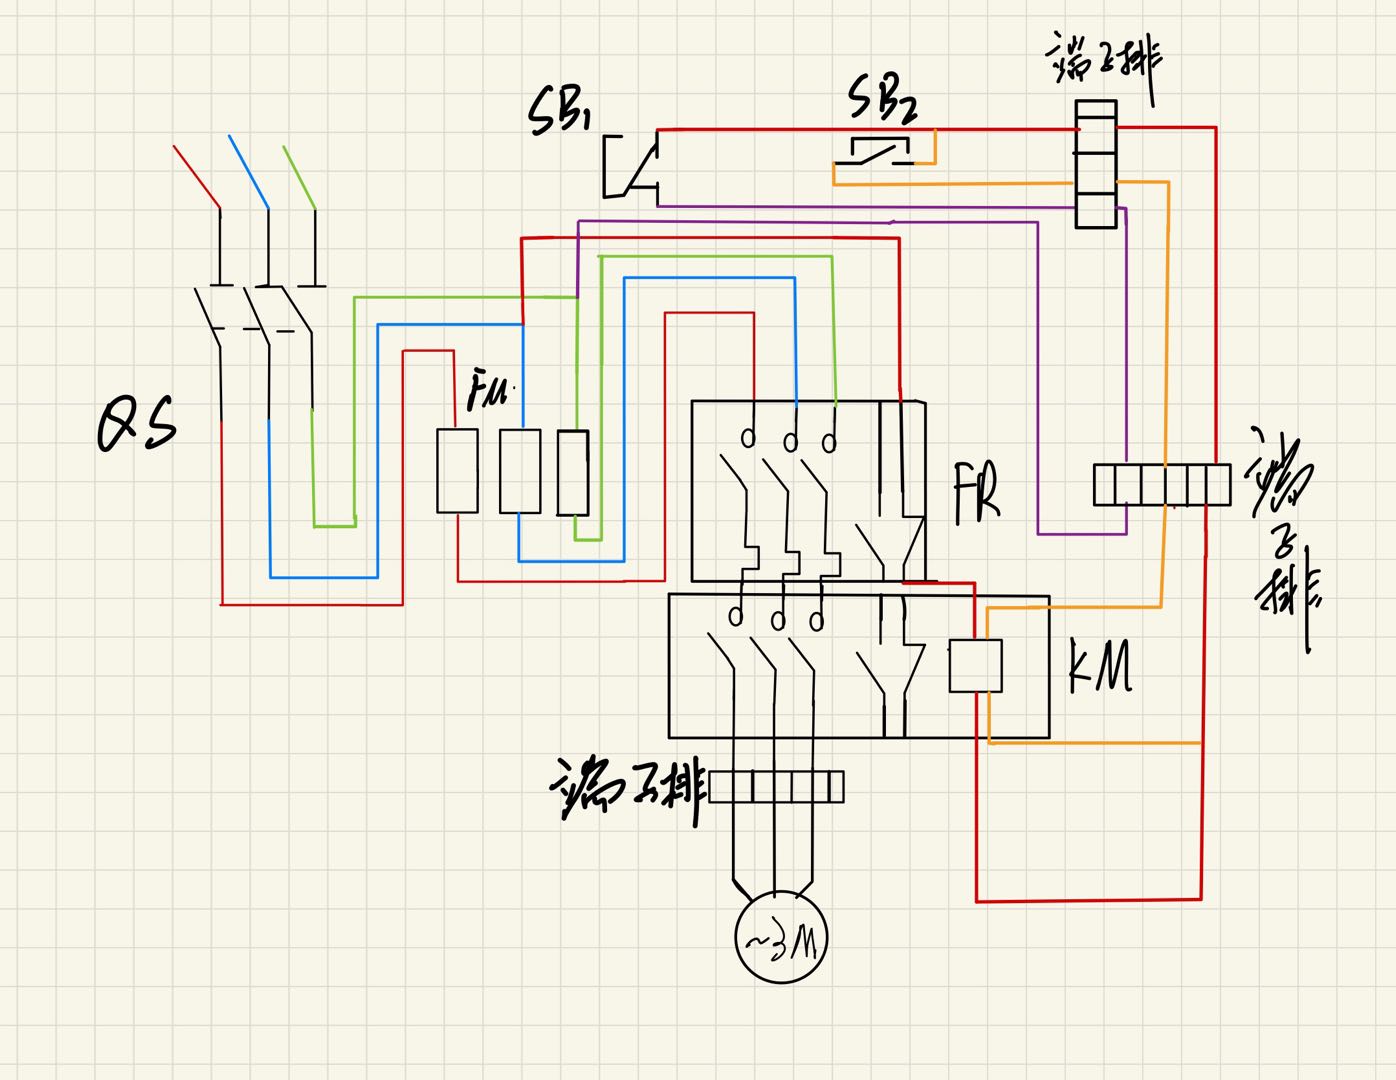 端子排
SB₁
SB₂
QS
FU
FR
端子排
KM
端子排
~3M